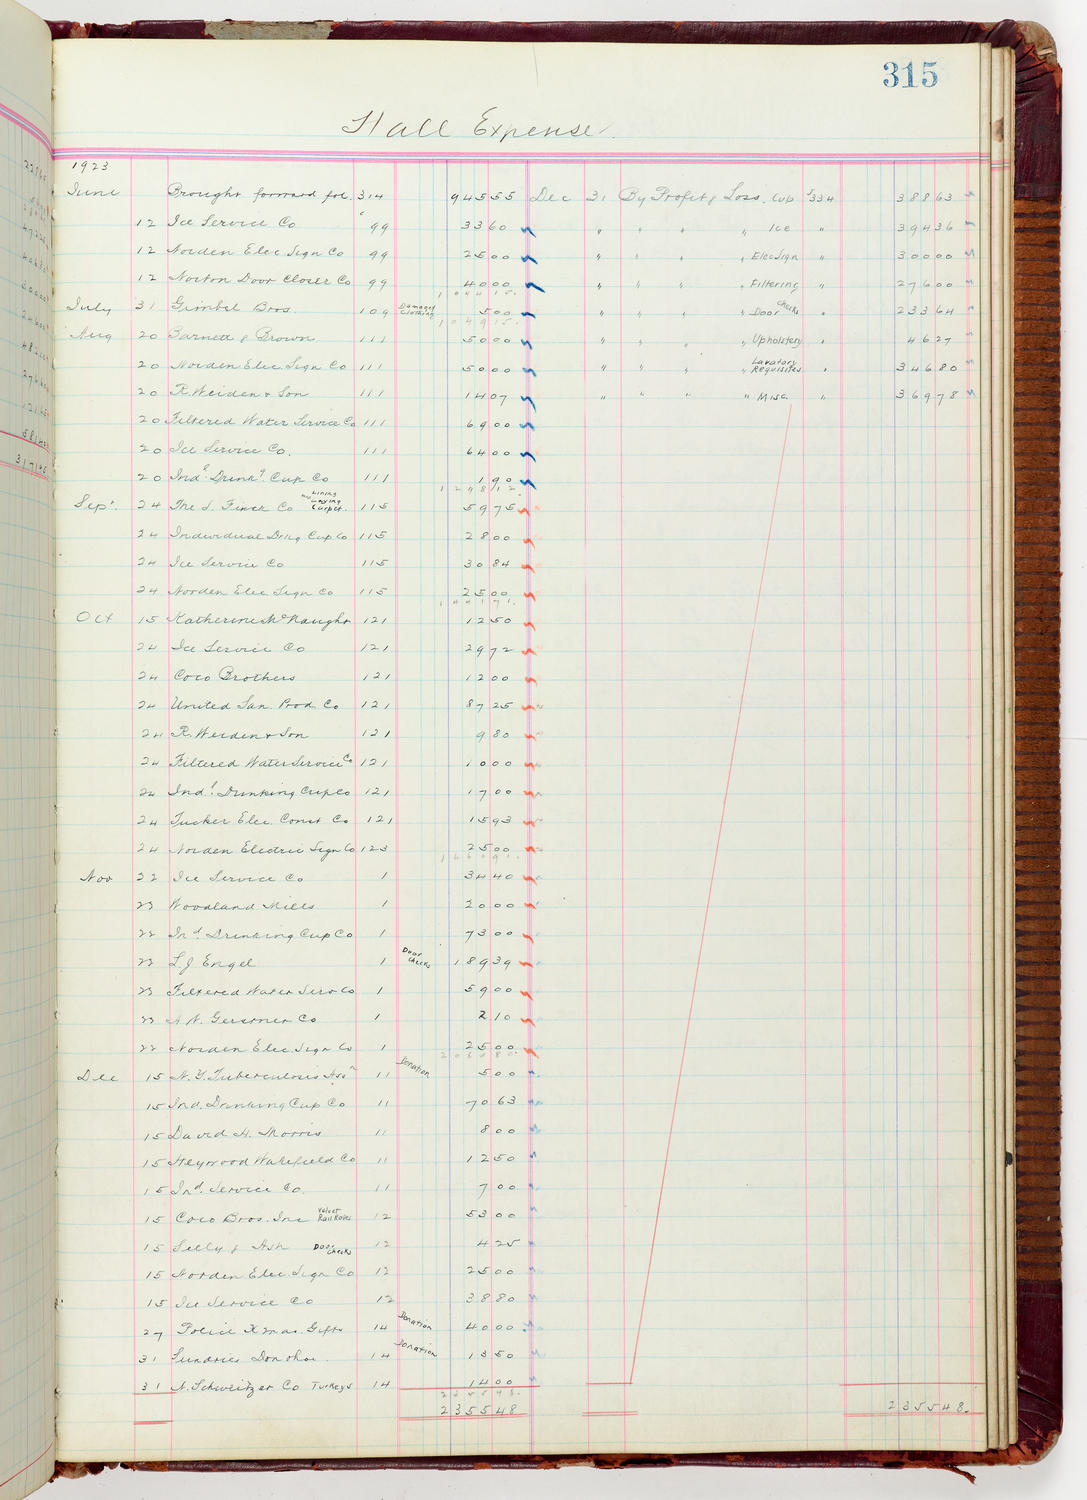 315
Hall Expense
1923
June Brought forward fol. 314 94555 Dec 31 By Profit & Loss. Cup $334 38863
12 Ice Service Co 99 3360 " " " " Ice " 39436
12 Norden Elec Sign Co 99 2500 " " " " Elec Sign " 30000
12 Norton Door Closer Co 99 4000 " " " " Filtering " 27600
104415
July 31 Gimbel Bros. 109 Damaged Clothing 500 " " " " Door Checks " 23364
104915
Aug 20 Barnett & Brown 111 5000 " " " " Upholstery " 4627
20 Norden Elec. Sign Co 111 5000 " " " " Lavatory Requisites " 34680
20 R. Weiden & Son 111 1407 " " " " Misc. " 36978
20 Filtered Water Service Co 111 6900
20 Ice Service Co. 111 6400
20 Indl. Drinkg. Cup Co 111 190
124812
Sept. 24 The S. Co Lining Laying Carpet. 115 5975
24 Individual Drkg Cup Co 115 2800
24 Ice Service Co 115 3084
24 Norden Elec Sign Co 115 2500
139171
Oct 15 Katherine McNaught 121 1250
24 Ice Service Co 121 2972
24 Coco Brothers 121 1200
24 United San. Prod. Co 121 8725
24 R. Weiden & Son 121 980
24 Filtered Water Service Co 121 1000
24 Indl. Drinking Cup Co 121 1700
24 Tucker Elec. Const Co 121 1593
24 Norden Electric Sign Co 123 2500
Nov 22 Ice Service Co 1 3440
23 Woodland Mills 1 2000
22 Ind. Drinking Cup Co 1 7300
22 L.J. Engel 1 Door Checks 18939
23 Filtered Water Serv Co 1 5900
23 Gerstner Co 1 210
22 Norden Elec. Sign Co 1 2500
Dec 15 N.Y. Tuberculosis Assn 11 Donation 500
15 Ind. Drinking Cup Co 11 7063
15 David H. Morris 11 800
15 Heywood Wakefield Co 11 1250
15 Ind. Service Co. 11 700
15 Coco Bros. Inc Velvet Rail Ropes 12 5300
15 & Ash Door Checks 12 425
15 Norden Elec Sign Co 12 2500
15 Ice Service Co 12 3880
27 Police Xmas. Gifts 14 Donation 4000
31 Sundries 14 Donation 1350
31 A. Schweitzer Co Turkeys 14 1400
235548
235548 235548.